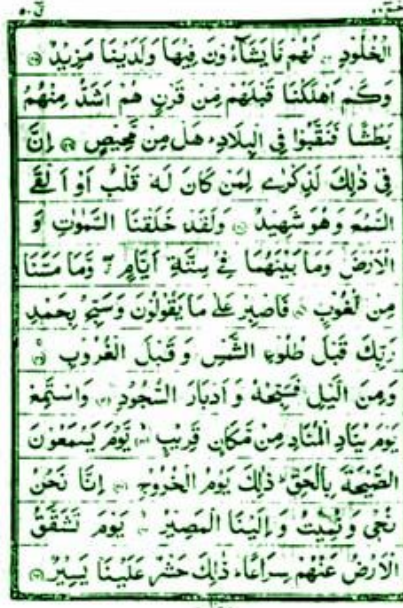 الْخُلُودِ لَهُمْ مَّا يَشَاءُوْنَ فِيْهَا وَلَدَيْنَا مَزِيْدٌ
وَكَمْ اَهْلَكْنَا قَبْلَهُمْ مِنْ قَرْنٍ هُمْ اَشَدُّ مِنْهُمْ
بَطْشًا فَنَقَّبُوْا فِى الْبِلَادِ هَلْ مِنْ مَّحِيْصٍ اِنَّ
فِيْ ذٰلِكَ لَذِكْرٰى لِمَنْ كَانَ لَهٗ قَلْبٌ اَوْ اَلْقَى
السَّمْعَ وَهُوَ شَهِيْدٌ وَلَقَدْ خَلَقْنَا السَّمٰوٰتِ وَ
الْاَرْضَ وَمَا بَيْنَهُمَا فِيْ سِتَّةِ اَيَّامٍ وَّمَا مَسَّنَا
مِنْ لُّغُوْبٍ فَاصْبِرْ عَلٰى مَا يَقُوْلُوْنَ وَسَبِّحْ بِحَمْدِ
رَبِّكَ قَبْلَ طُلُوْعِ الشَّمْسِ وَقَبْلَ الْغُرُوْبِ
وَمِنَ الَّيْلِ فَسَبِّحْهُ وَاَدْبَارَ السُّجُوْدِ وَاسْتَمِعْ
يَوْمَ يُنَادِ الْمُنَادِ مِنْ مَّكَانٍ قَرِيْبٍ يَّوْمَ يَسْمَعُوْنَ
الصَّيْحَةَ بِالْحَقِّ ذٰلِكَ يَوْمُ الْخُرُوْجِ اِنَّا نَحْنُ
نُحْيٖ وَنُمِيْتُ وَاِلَيْنَا الْمَصِيْرُ يَوْمَ تَشَقَّقُ
الْاَرْضُ عَنْهُمْ سِرَاعًا ذٰلِكَ حَشْرٌ عَلَيْنَا يَسِيْرٌ